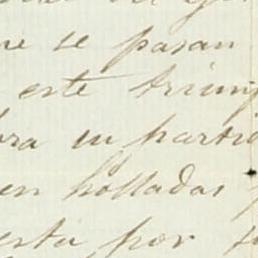 se pasan
este triunf
ra su partid
en holladas
esta por